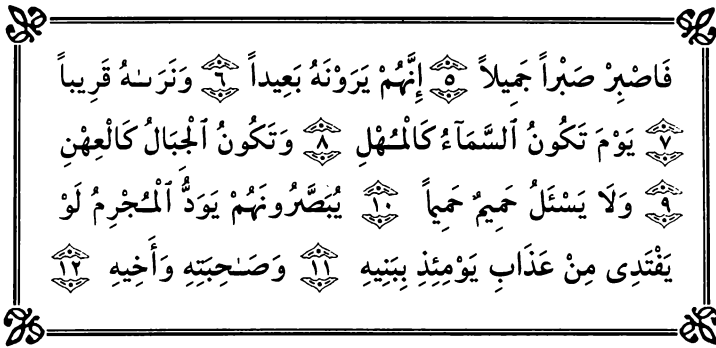 فَاصْبِرْ صَبْراً جَمِيلاً ٥ إِنَّهُمْ يَرَوْنَهُ بَعِيداً ٦ وَنَرَىٰهُ قَرِيباً
٧ يَوْمَ تَكُونُ ٱلسَّمَآءُ كَالْمُهْلِ ٨ وَتَكُونُ ٱلْجِبَالُ كَالْعِهْنِ
٩ وَلَا يَسْئَلُ حَمِيمٌ حَمِيماً ١٠ يُبَصَّرُونَهُمْ يَوَدُّ ٱلْمُجْرِمُ لَوْ
يَفْتَدِى مِنْ عَذَابِ يَوْمِئِذِ بِبَنِيهِ ١١ وَصَـٰحِبَتِهِ وَأَخِيهِ ١٢